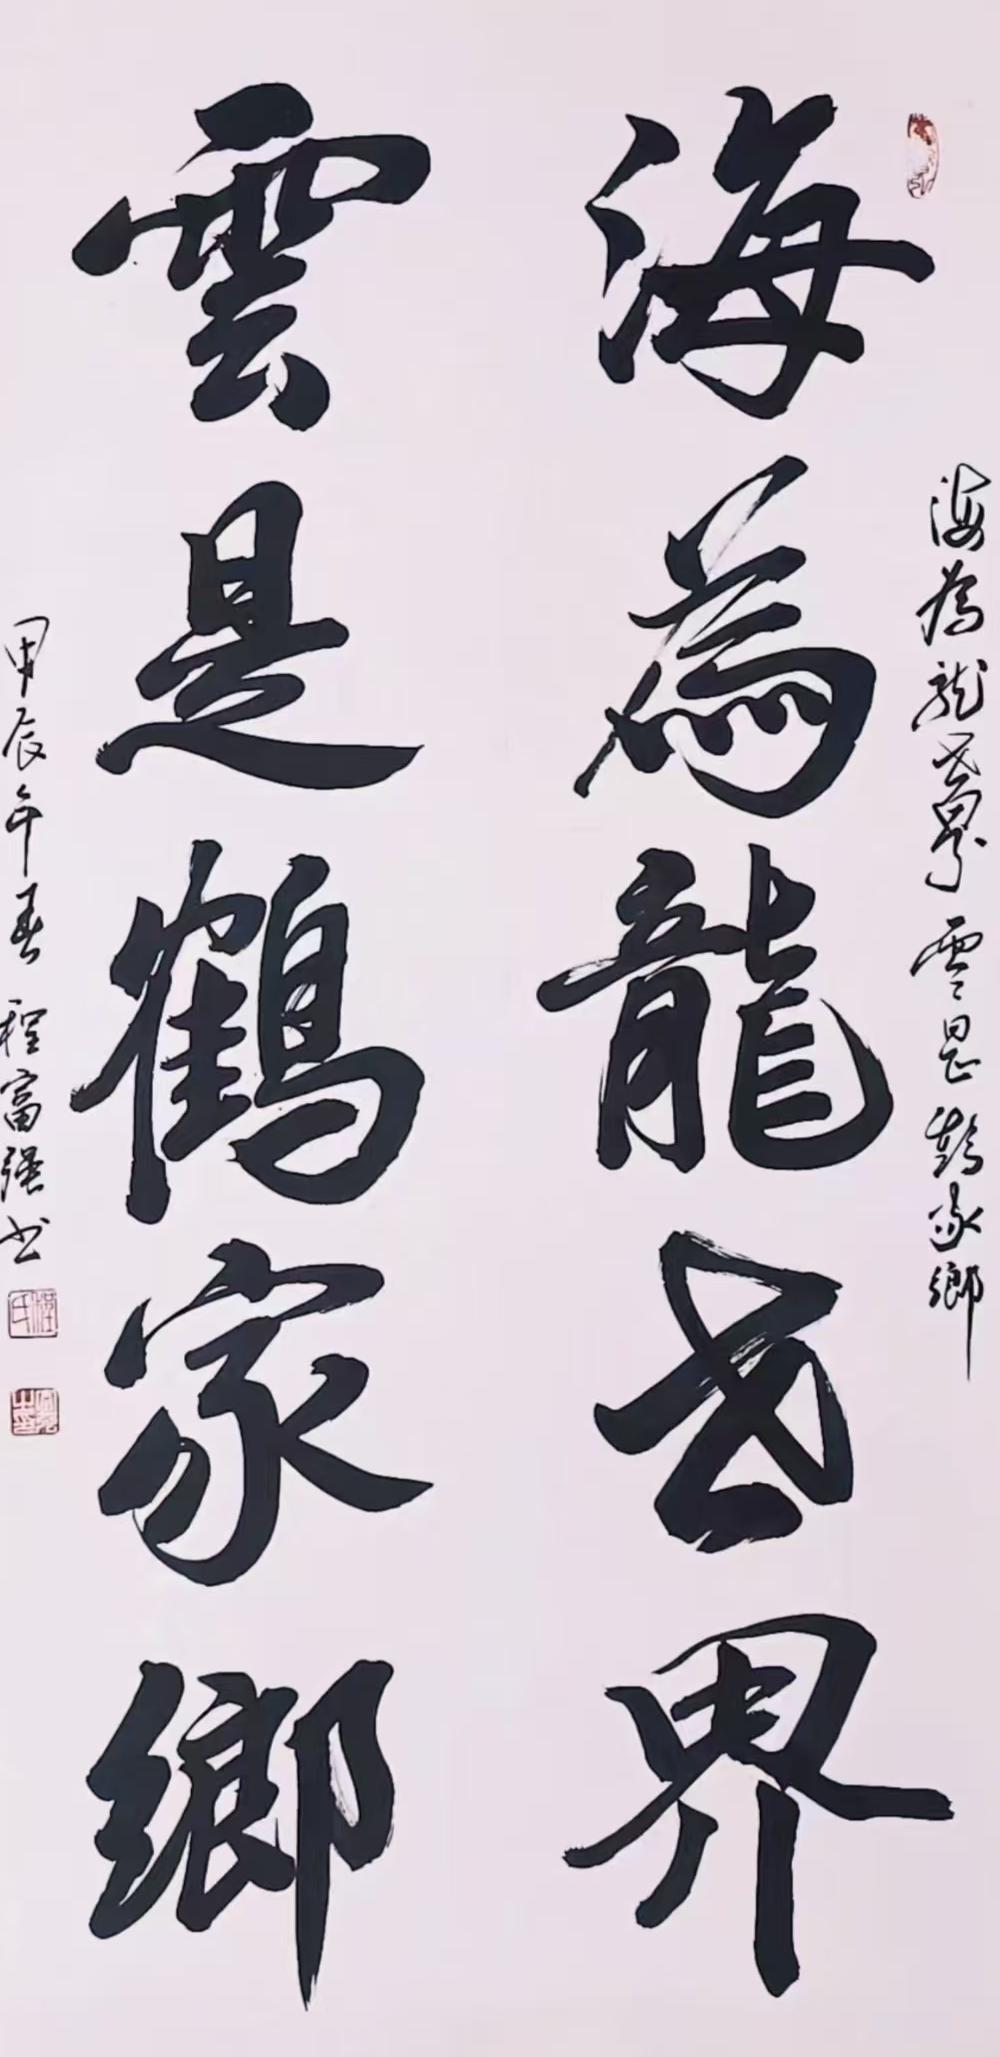 海為龍世界
雲是鶴家鄉
海為龍世界雲是鶴家鄉
甲辰年春程富強书